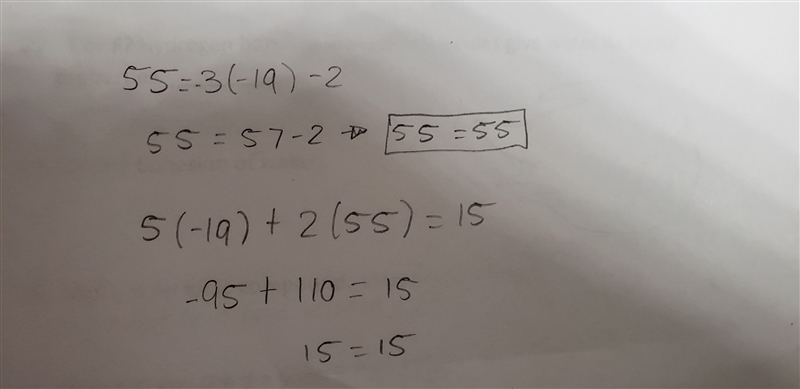 55=-3(-19)-2
55=57-2→ 55=55
5(-19)+2(55)=15
-95+110=15
15=15